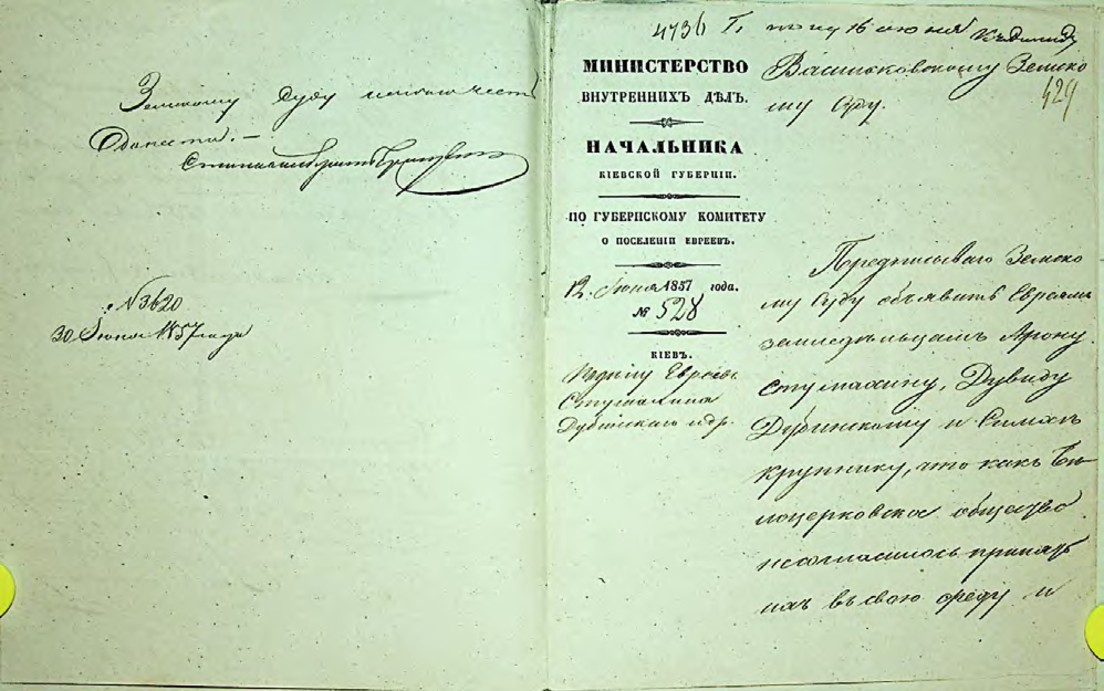 Земскому Суду
Донести. —
№ 3620
30 Іюня 1857 года
4736 16 июня
МИНИСТЕРСТВО
ВНУТРЕННИХЪ ДѢЛЪ.
НАЧАЛЬНИКА
КІЕВСКОЙ ГУБЕРНІИ.
ПО ГУБЕРНСКОМУ КОМИТЕТУ
О ПОСЕЛЕНІИ ЕВРЕЕВЪ.
12 Іюня 1857 года.
№ 528
КІЕВЪ.
Евреевъ
Стугмахина
Дубинскаго и др.
Васильковскому Земско
му Суду.
429
Предписываю Земско
му Суду объявить Евреямъ
земледѣльцамъ Арону
Стугмахину, Дувиду
Дубинскому и
Крупнику, что какъ Бѣ
лоцерковское общество
несогласилось принять
ихъ въ свою среду и